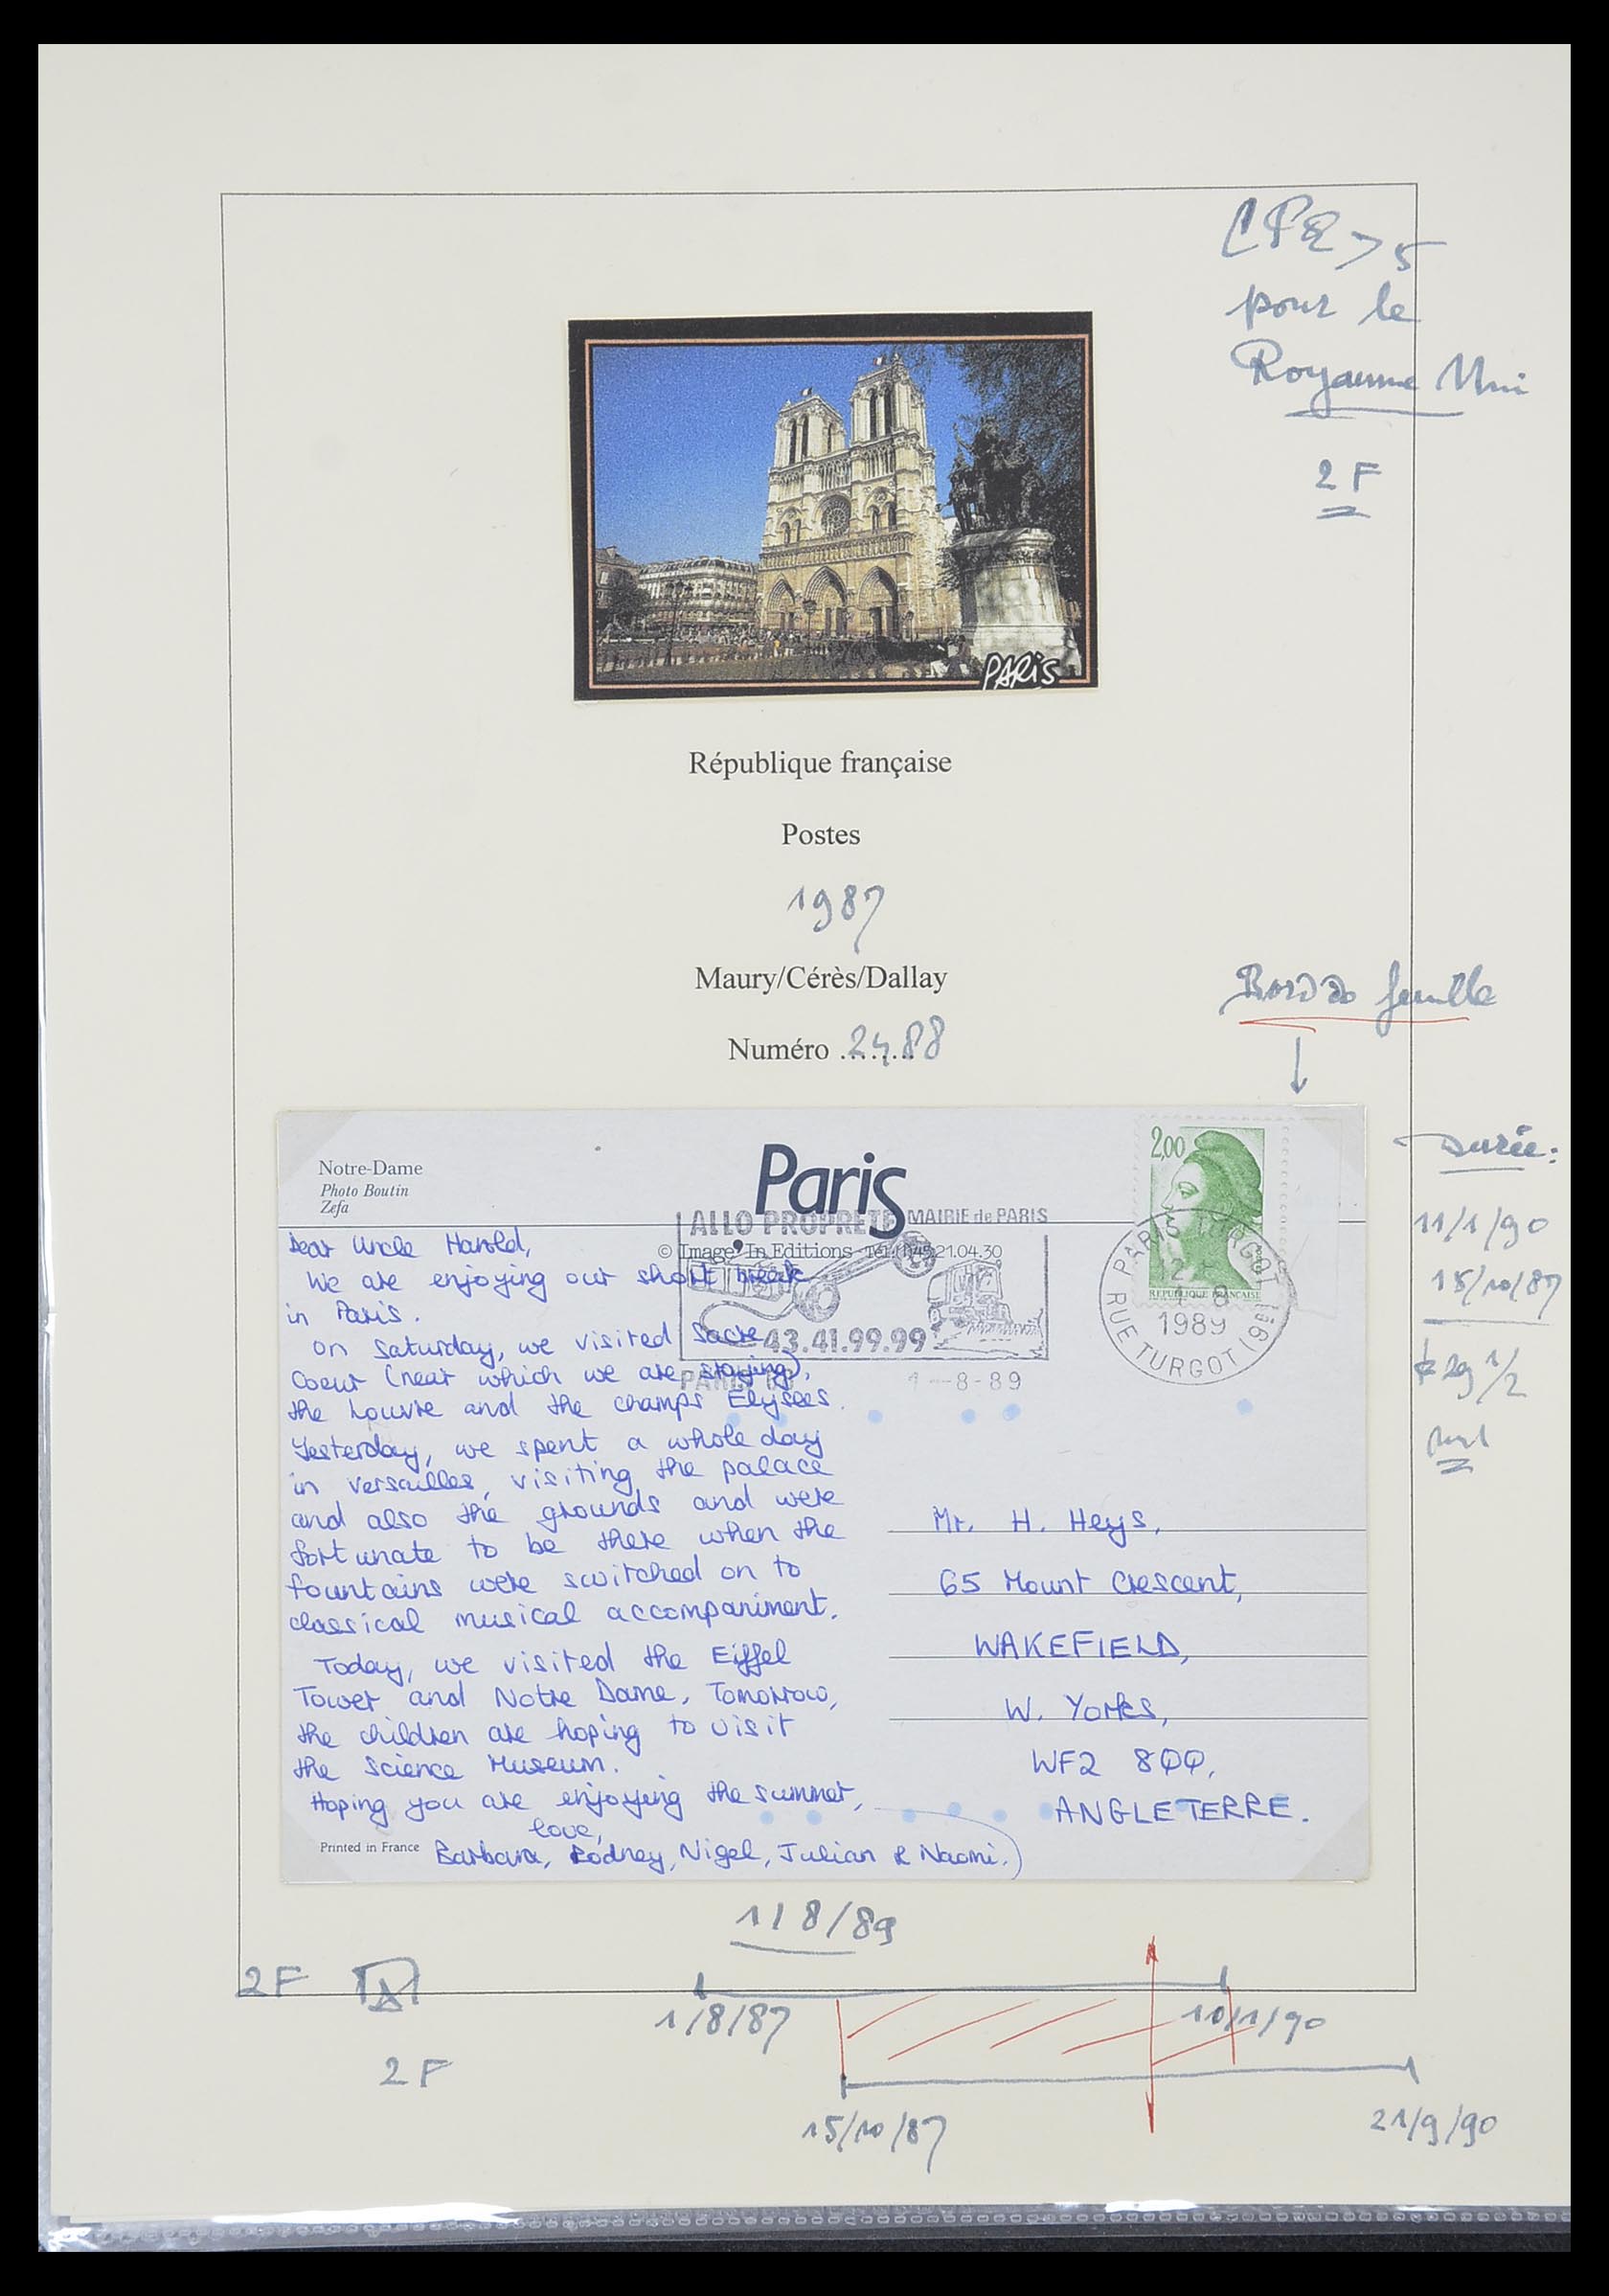 CPE > 5
pour le
Royaume Uni
2 F
PARIS
République française
Postes
1987
Maury/Cérès/Dallay
Numéro ........ 2488
Bord de feuille
Durée:
11/1/90
15/10/87
29 1/2
Notre-Dame
Photo Boutin
Zefa
Paris
© Image'In Editions - Tél. (1) 45.21.04.30
ALLO PROPRETE MAIRIE de PARIS
43.41.99.99
1--8-89
2,00
REPUBLIQUE FRANÇAISE
PARIS TURGOT
1989
RUE TURGOT (9e)
Dear Uncle Harold,
We are enjoying our short break
in Paris.
On Saturday, we visited Sacre
Coeur (near which we are staying),
the Louvre and the Champs Elysées.
Yesterday, we spent a whole day
in Versailles, visiting the palace
and also the grounds and were
fortunate to be there when the
fountains were switched on to
classical musical accompaniment.
Today, we visited the Eiffel
Tower and Notre Dame. Tomorrow,
the children are hoping to visit
the Science Museum.
Hoping you are enjoying the summer,
love,
Barbara, Rodney, Nigel, Julian & Naomi.
Printed in France
Mr. H. Heys,
65 Mount Crescent,
WAKEFIELD,
W. Yorks,
WF2 8QQ,
ANGLETERRE.
1/8/89
2F
1/8/87
10/1/90
2 F
15/10/87
21/9/90